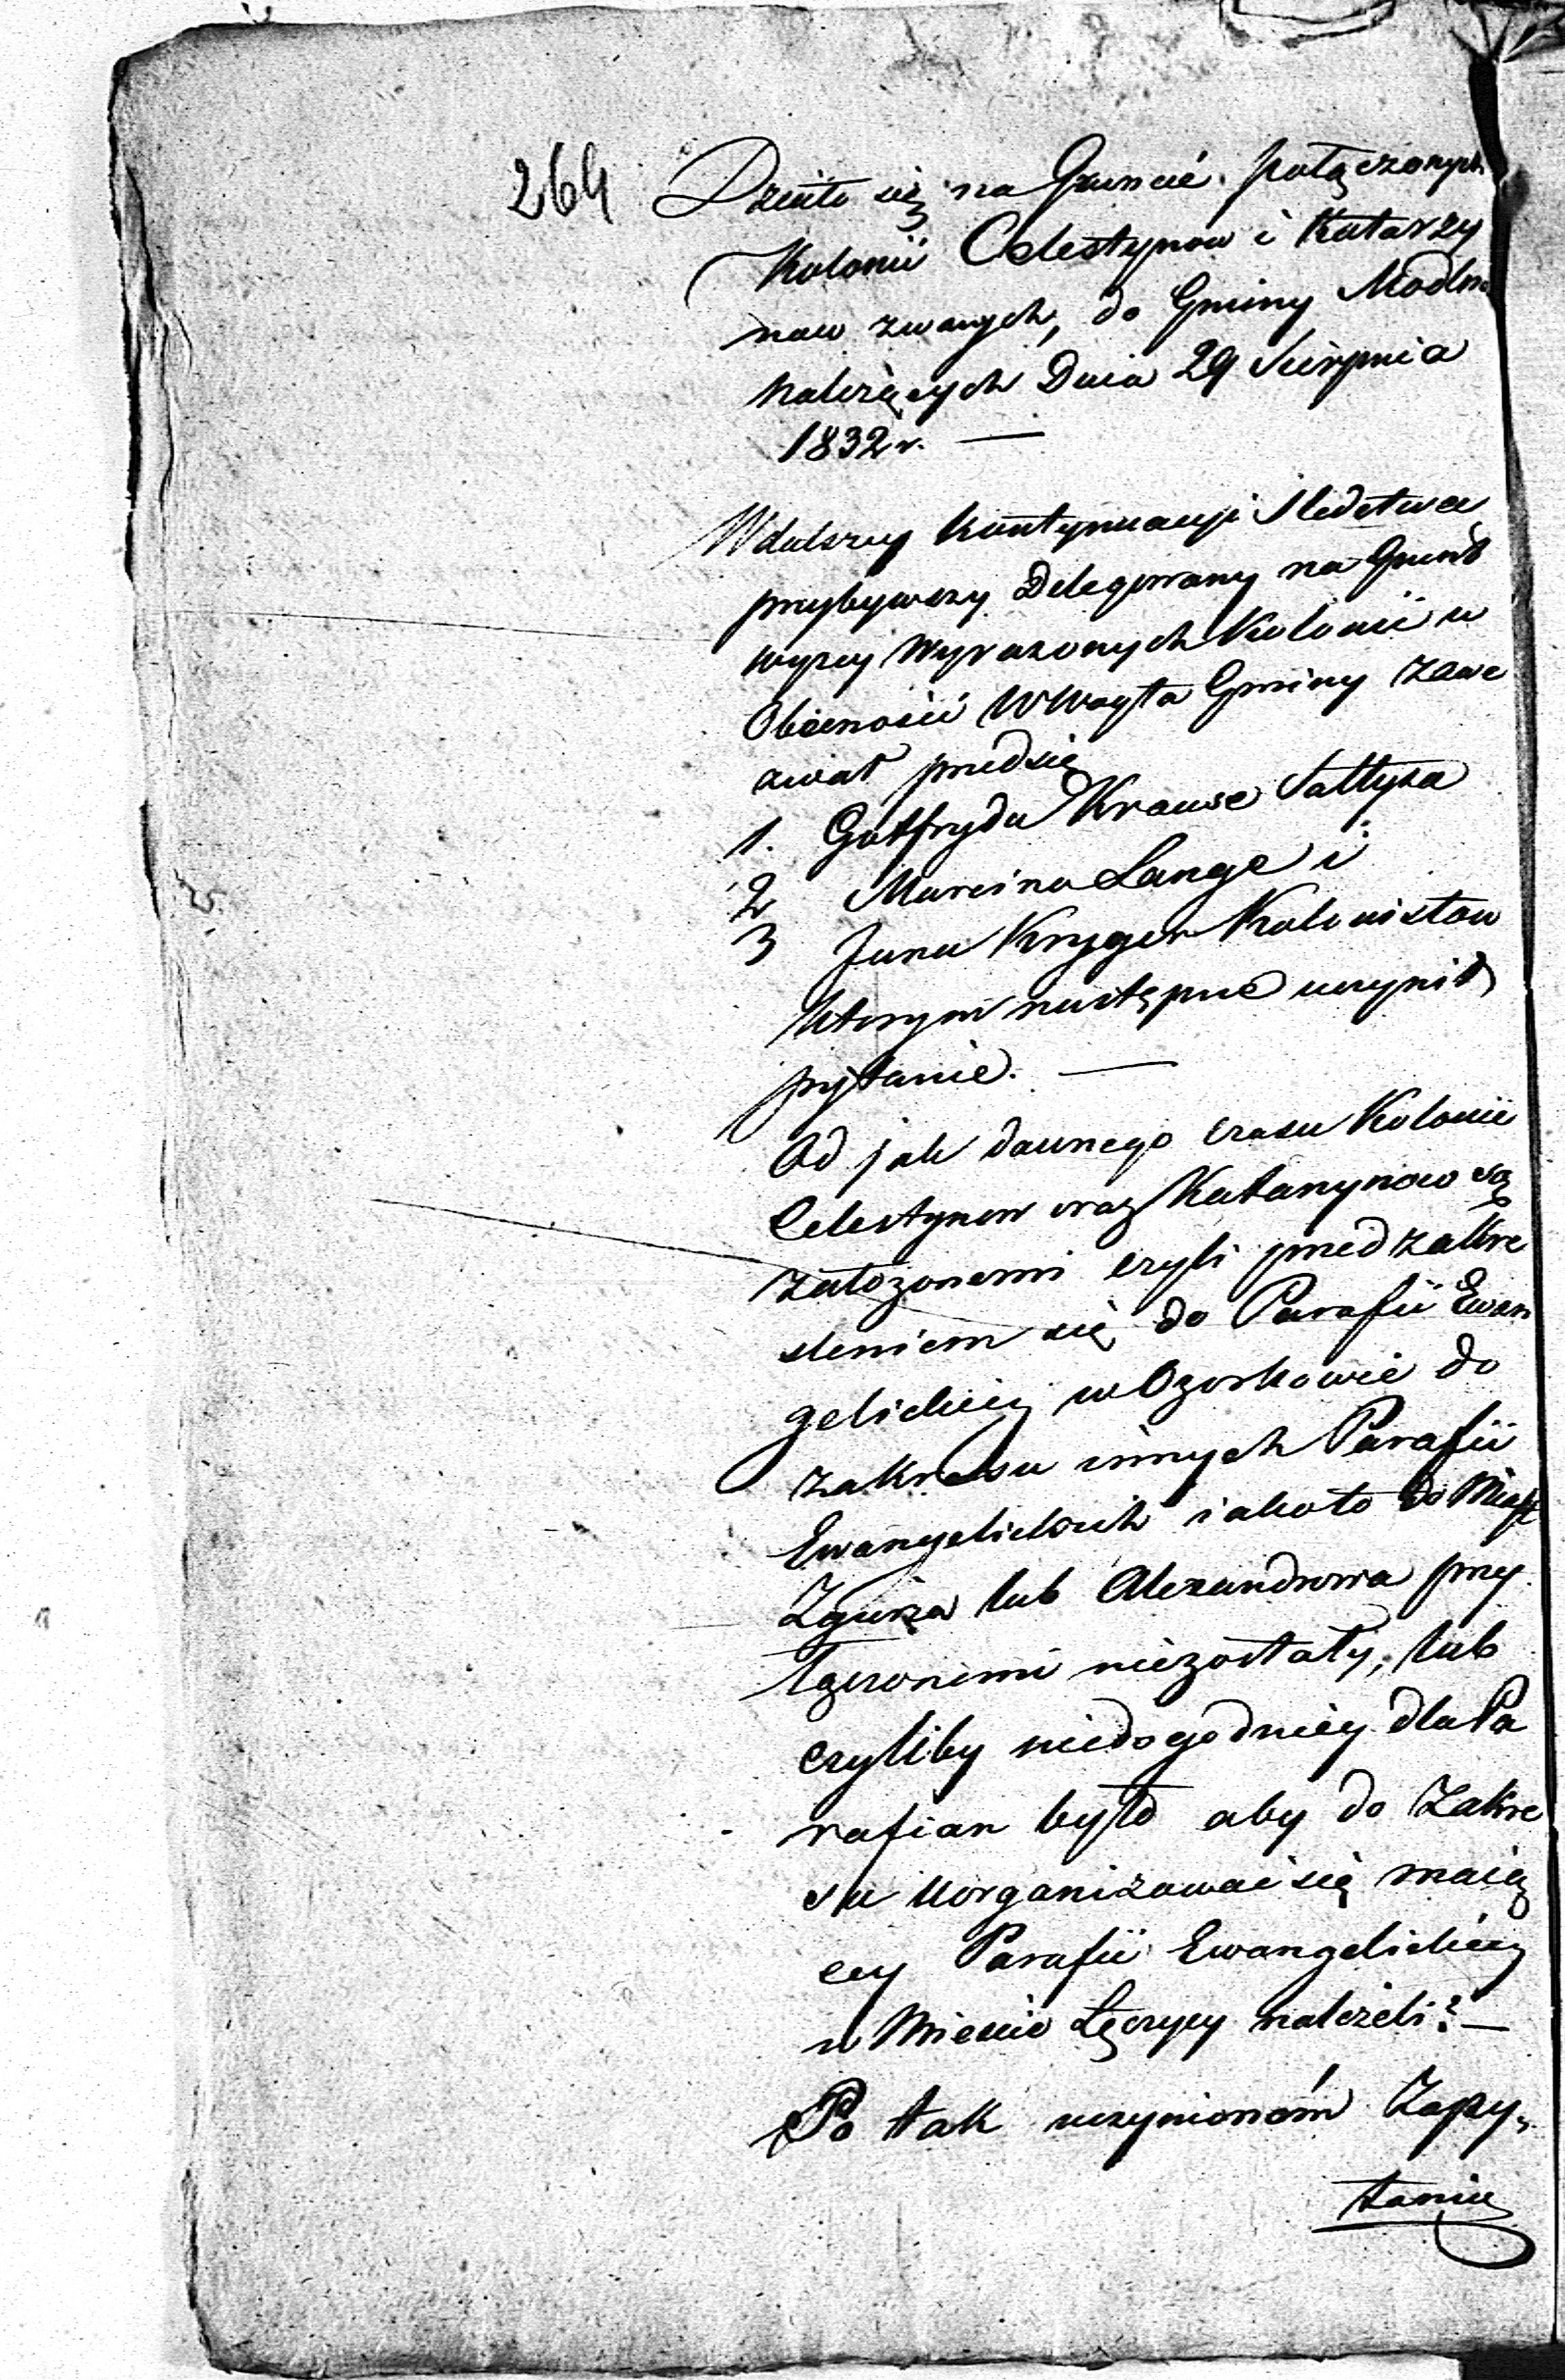 264
Działo się na Gruncie połączonych
Kolonii Celestynow i Katarzy
now zwanych, do Gminy Modlna
należących Dnia 29 Sierpnia
1832 r. —
W dalszey kontynuacyi Sledztwa
przybywszy Delegowany na Grunt
wyzey wyrazonych Kolonii w
Obecności W Woyta Gminy zawe
zwał przed się
1. Gotfryda Krause Sołtysa
2 Marcina Lange i
3 Jana Kryger Kolonistow
ktorym następne uczynił
pytanie. —
Od jak dawnego czasu Kolonie
Celestynow oraz Katarzynow są
założonemi czyli przed zakre
sleniem się do Parafii Ewan
gelickiey w Ozorkowie do
zakresu innych Parafii
Ewangelickich iakoto do Miast
Zgierza lub Alexandrowa przy
łączonemi niezostały, lub
czyliby niedogodniey dla Pa
rafian było aby do Zakre
su uorganizować się maią
cey Parafii Ewangelickiey
w Miescie Łęczycy należeli? —
Po tak uczynioném Zapy„
taniu